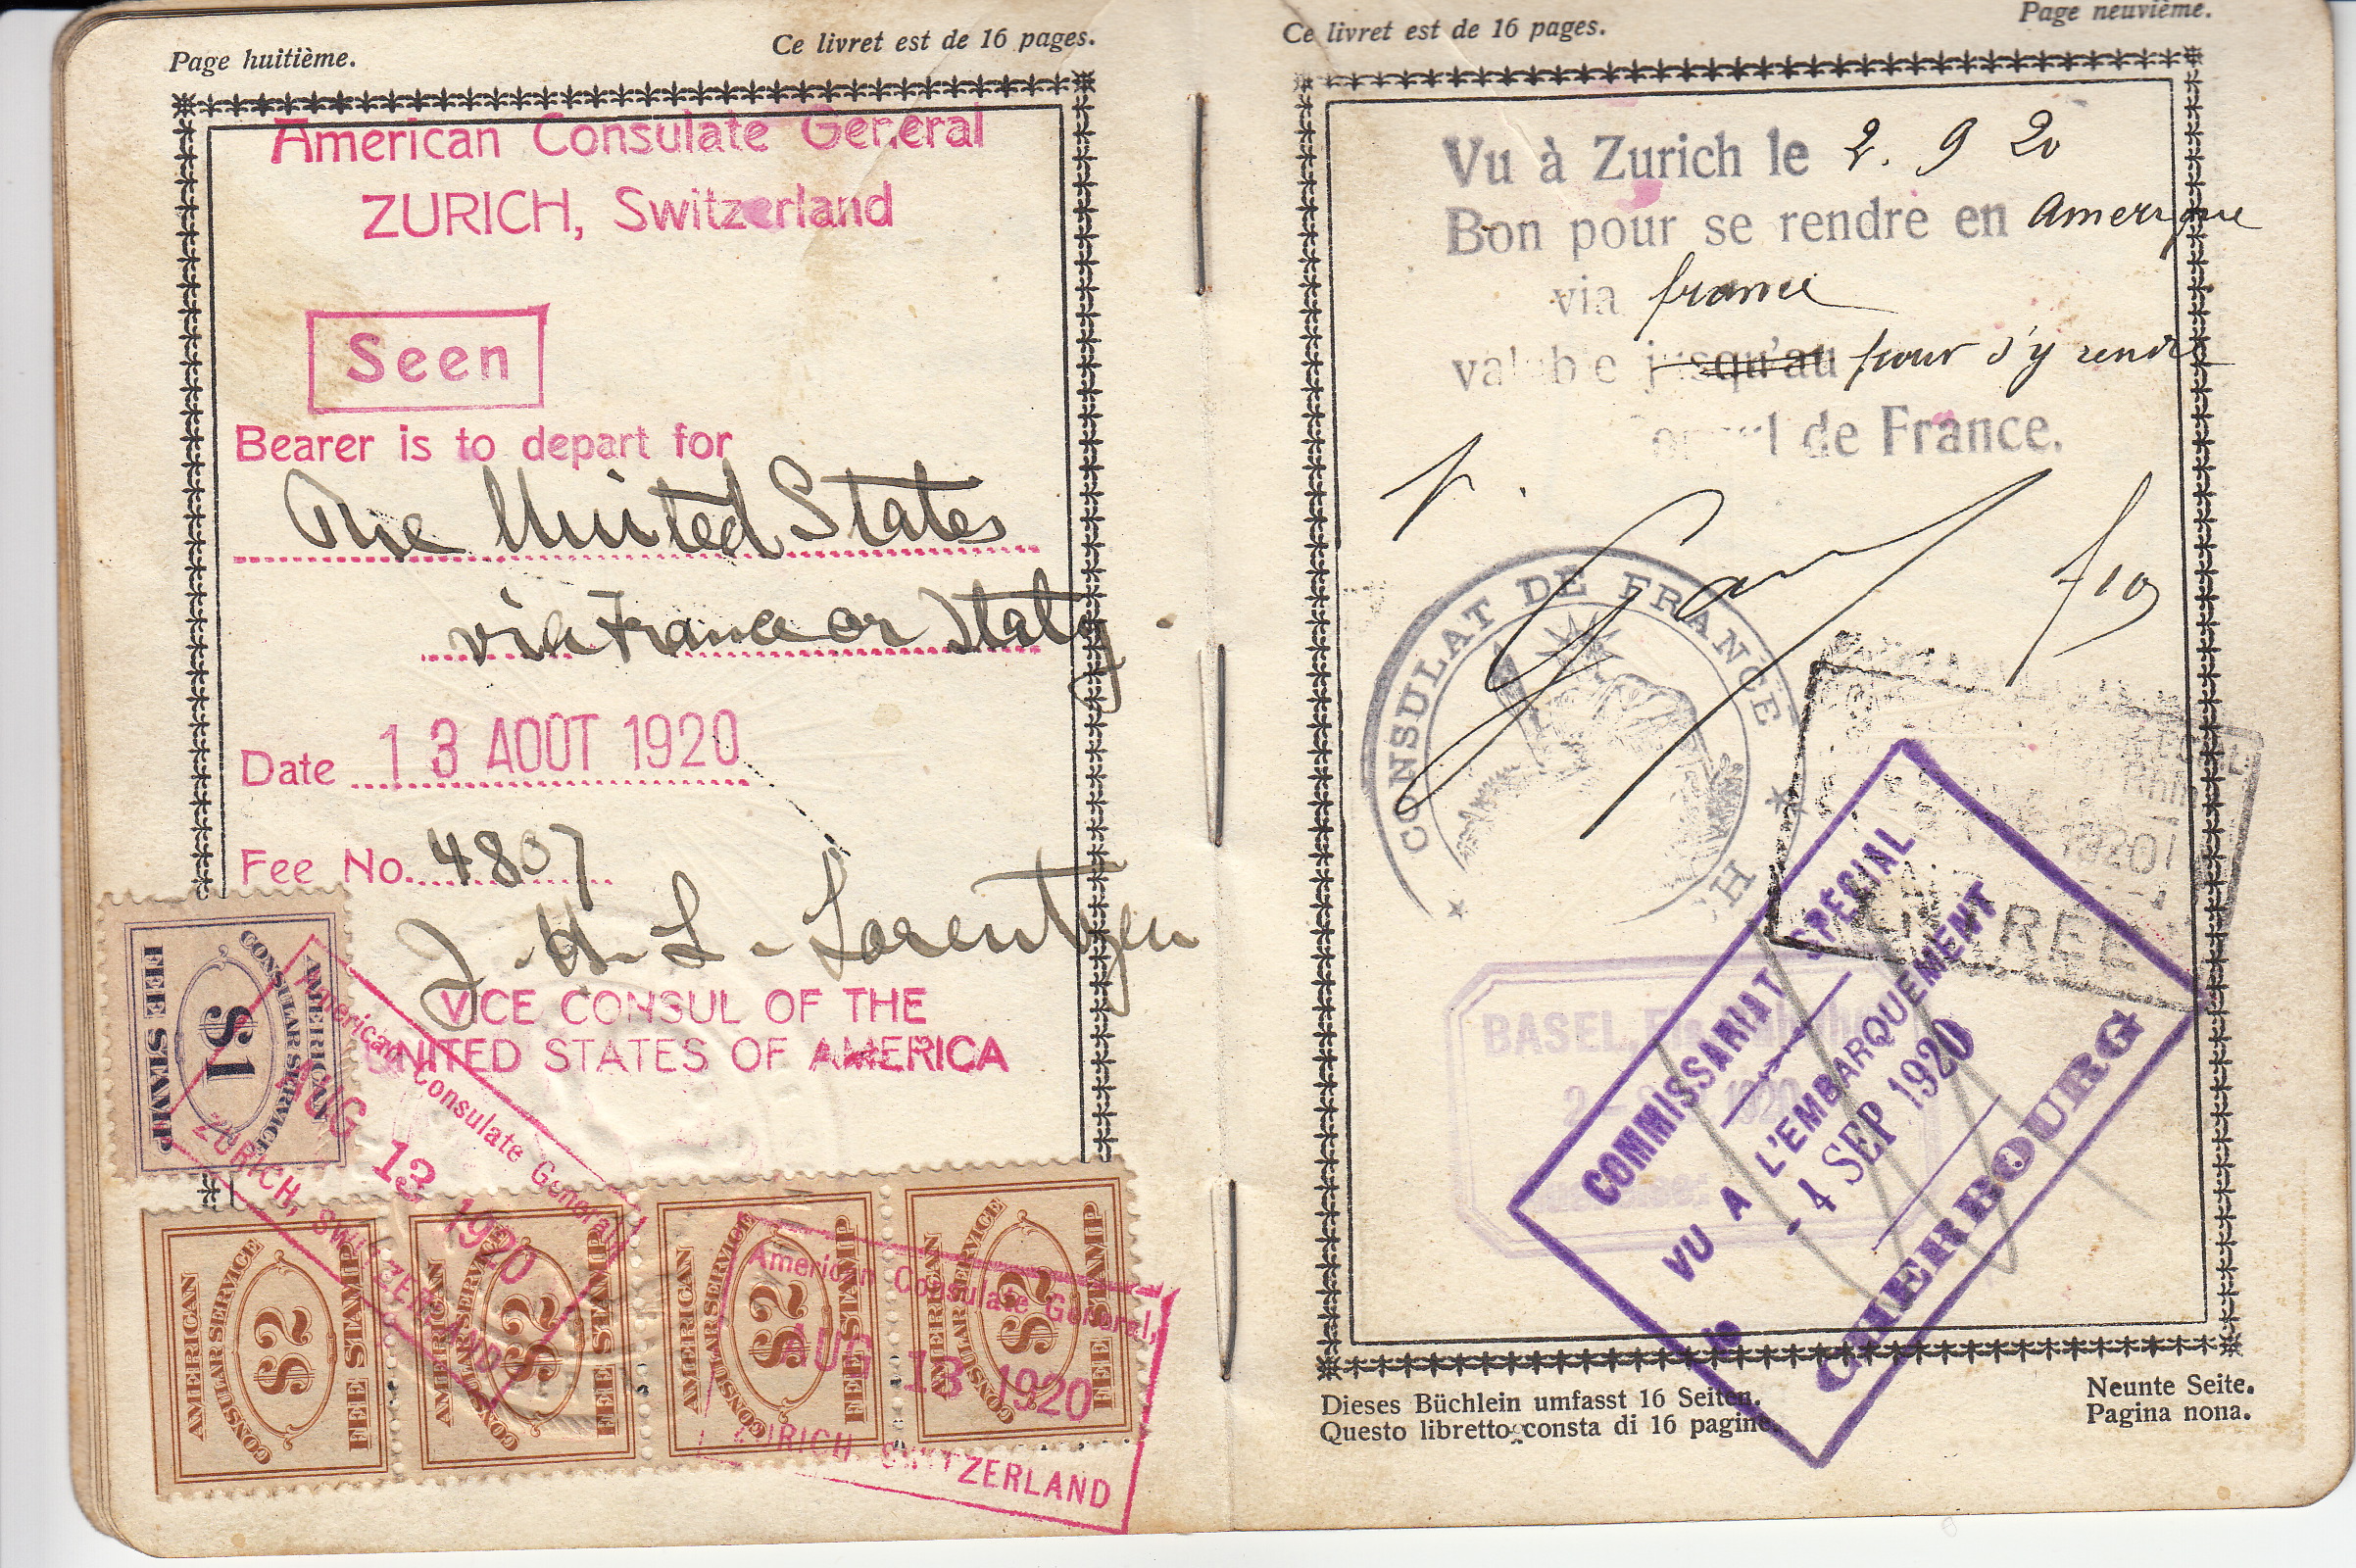 Page huitième.
Ce livret est de 16 pages.
American Consulate General
ZURICH, Switzerland
Seen
Bearer is to depart for
The United States
via France or Italy
Date 13 AOUT 1920
Fee No. 4807
J. H. L. Lorentzen
VICE CONSUL OF THE
UNITED STATES OF AMERICA
AMERICAN
CONSULAR SERVICE
$1
FEE STAMP
American Consulate General
AUG 13 1920
ZURICH, SWITZERLAND
AMERICAN
CONSULAR SERVICE
$2
FEE STAMP
AMERICAN
CONSULAR SERVICE
$2
FEE STAMP
AMERICAN
CONSULAR SERVICE
$2
FEE STAMP
AMERICAN
CONSULAR SERVICE
$2
FEE STAMP
American Consulate General,
AUG 13 1920
ZURICH SWITZERLAND
Ce livret est de 16 pages.
Page neuvième.
Vu à Zurich le 2. 9 20
Bon pour se rendre en Amerique
via france
valable jusqu'au pour s'y rendre
Consul de France.
CONSULAT DE FRANCE
1920
ENTREE
BASEL,
1920
COMMISSARIAT SPECIAL
VU A L'EMBARQUEMENT
- 4 SEP 1920
CHERBOURG
Dieses Büchlein umfasst 16 Seiten.
Questo libretto consta di 16 pagine.
Neunte Seite.
Pagina nona.